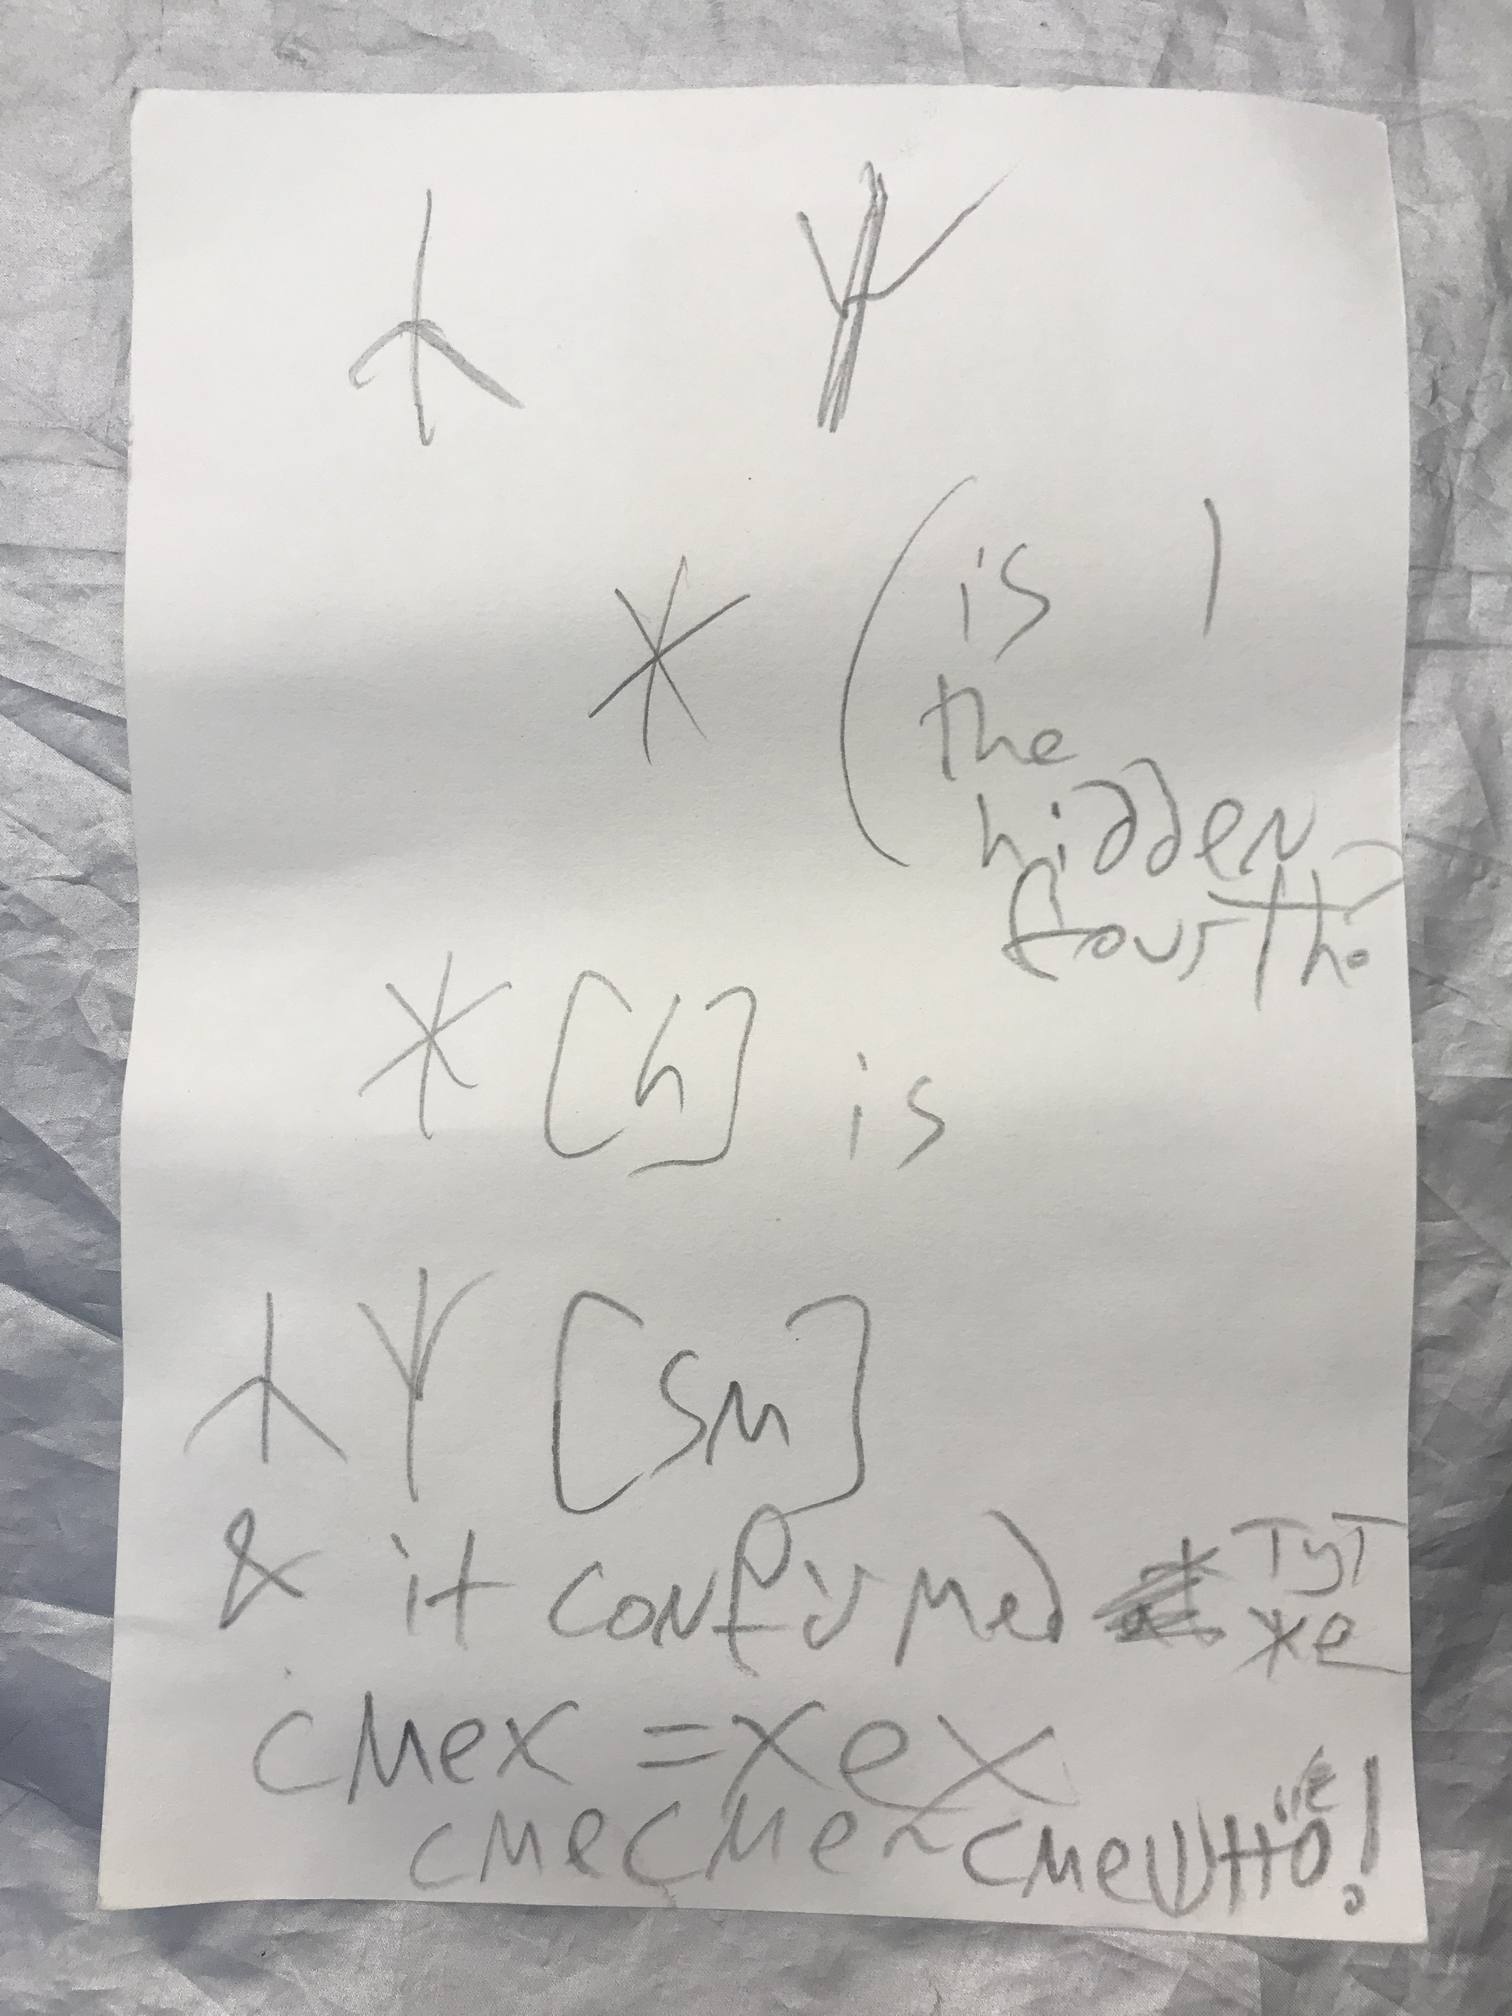 ⅄ Ψ
* (is )
the
hidden
fourth?
* [h] is
⅄Y [sm]
& it confirmed ТУТ
же
смех = хех
смесме ~ смешно!